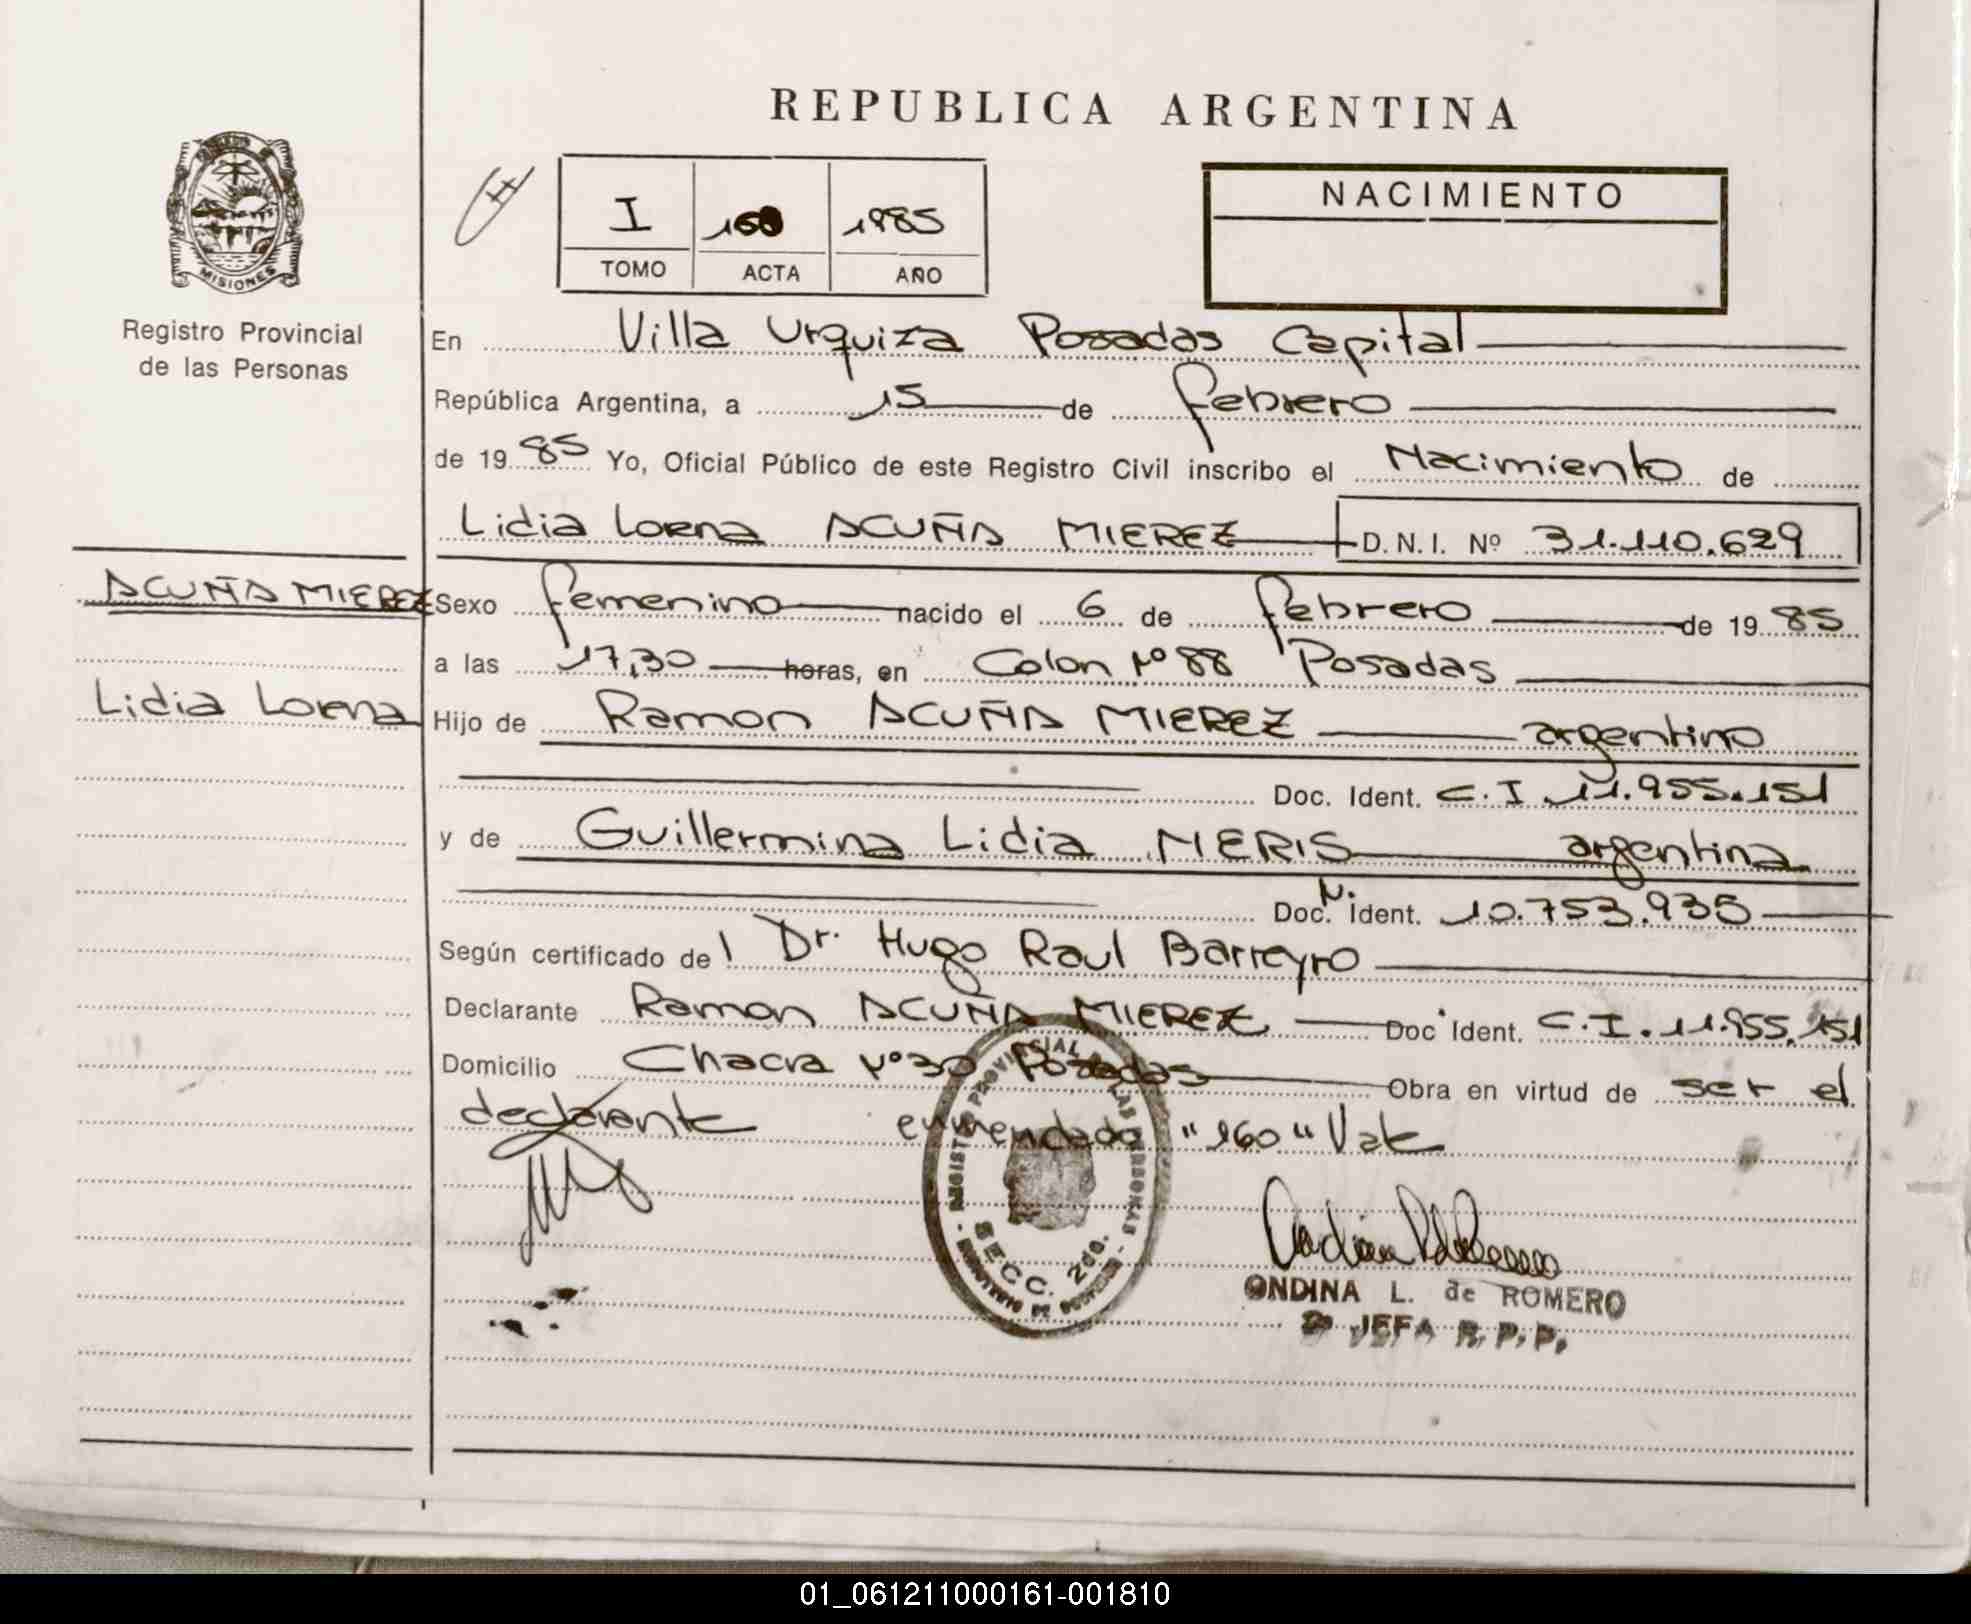 REPUBLICA ARGENTINA
MISIONES
Registro Provincial
de las Personas
I 160 1985
TOMO ACTA AÑO
NACIMIENTO
En Villa Urquiza Posadas Capital
República Argentina, a 15 de febrero
de 1985 Yo, Oficial Público de este Registro Civil inscribo el Nacimiento de
Lidia Lorena ACUÑA MIEREZ D.N.I. Nº 31.110.629
ACUÑA MIEREZ
Lidia Lorena
Sexo femenino nacido el 6 de febrero de 1985
a las 17,30 horas, en Colon Nº 88 Posadas
Hijo de Ramon ACUÑA MIEREZ argentino
Doc. Ident. C.I 11.955.151
y de Guillermina Lidia NERIS argentina
Doc. N. Ident. 10.753.935
Según certificado del Dr. Hugo Raul Barreyro
Declarante Ramon ACUÑA MIEREZ Doc Ident. C.I. 11.955.151
Domicilio Chacra Nº 30 Posadas Obra en virtud de ser el
declarante enmendado "160" Vale
REGISTRO PROVINCIAL DE LAS PERSONAS
SECC. 2da.
ONDINA L. de ROMERO
JEFA R.P.P.
01_061211000161-001810